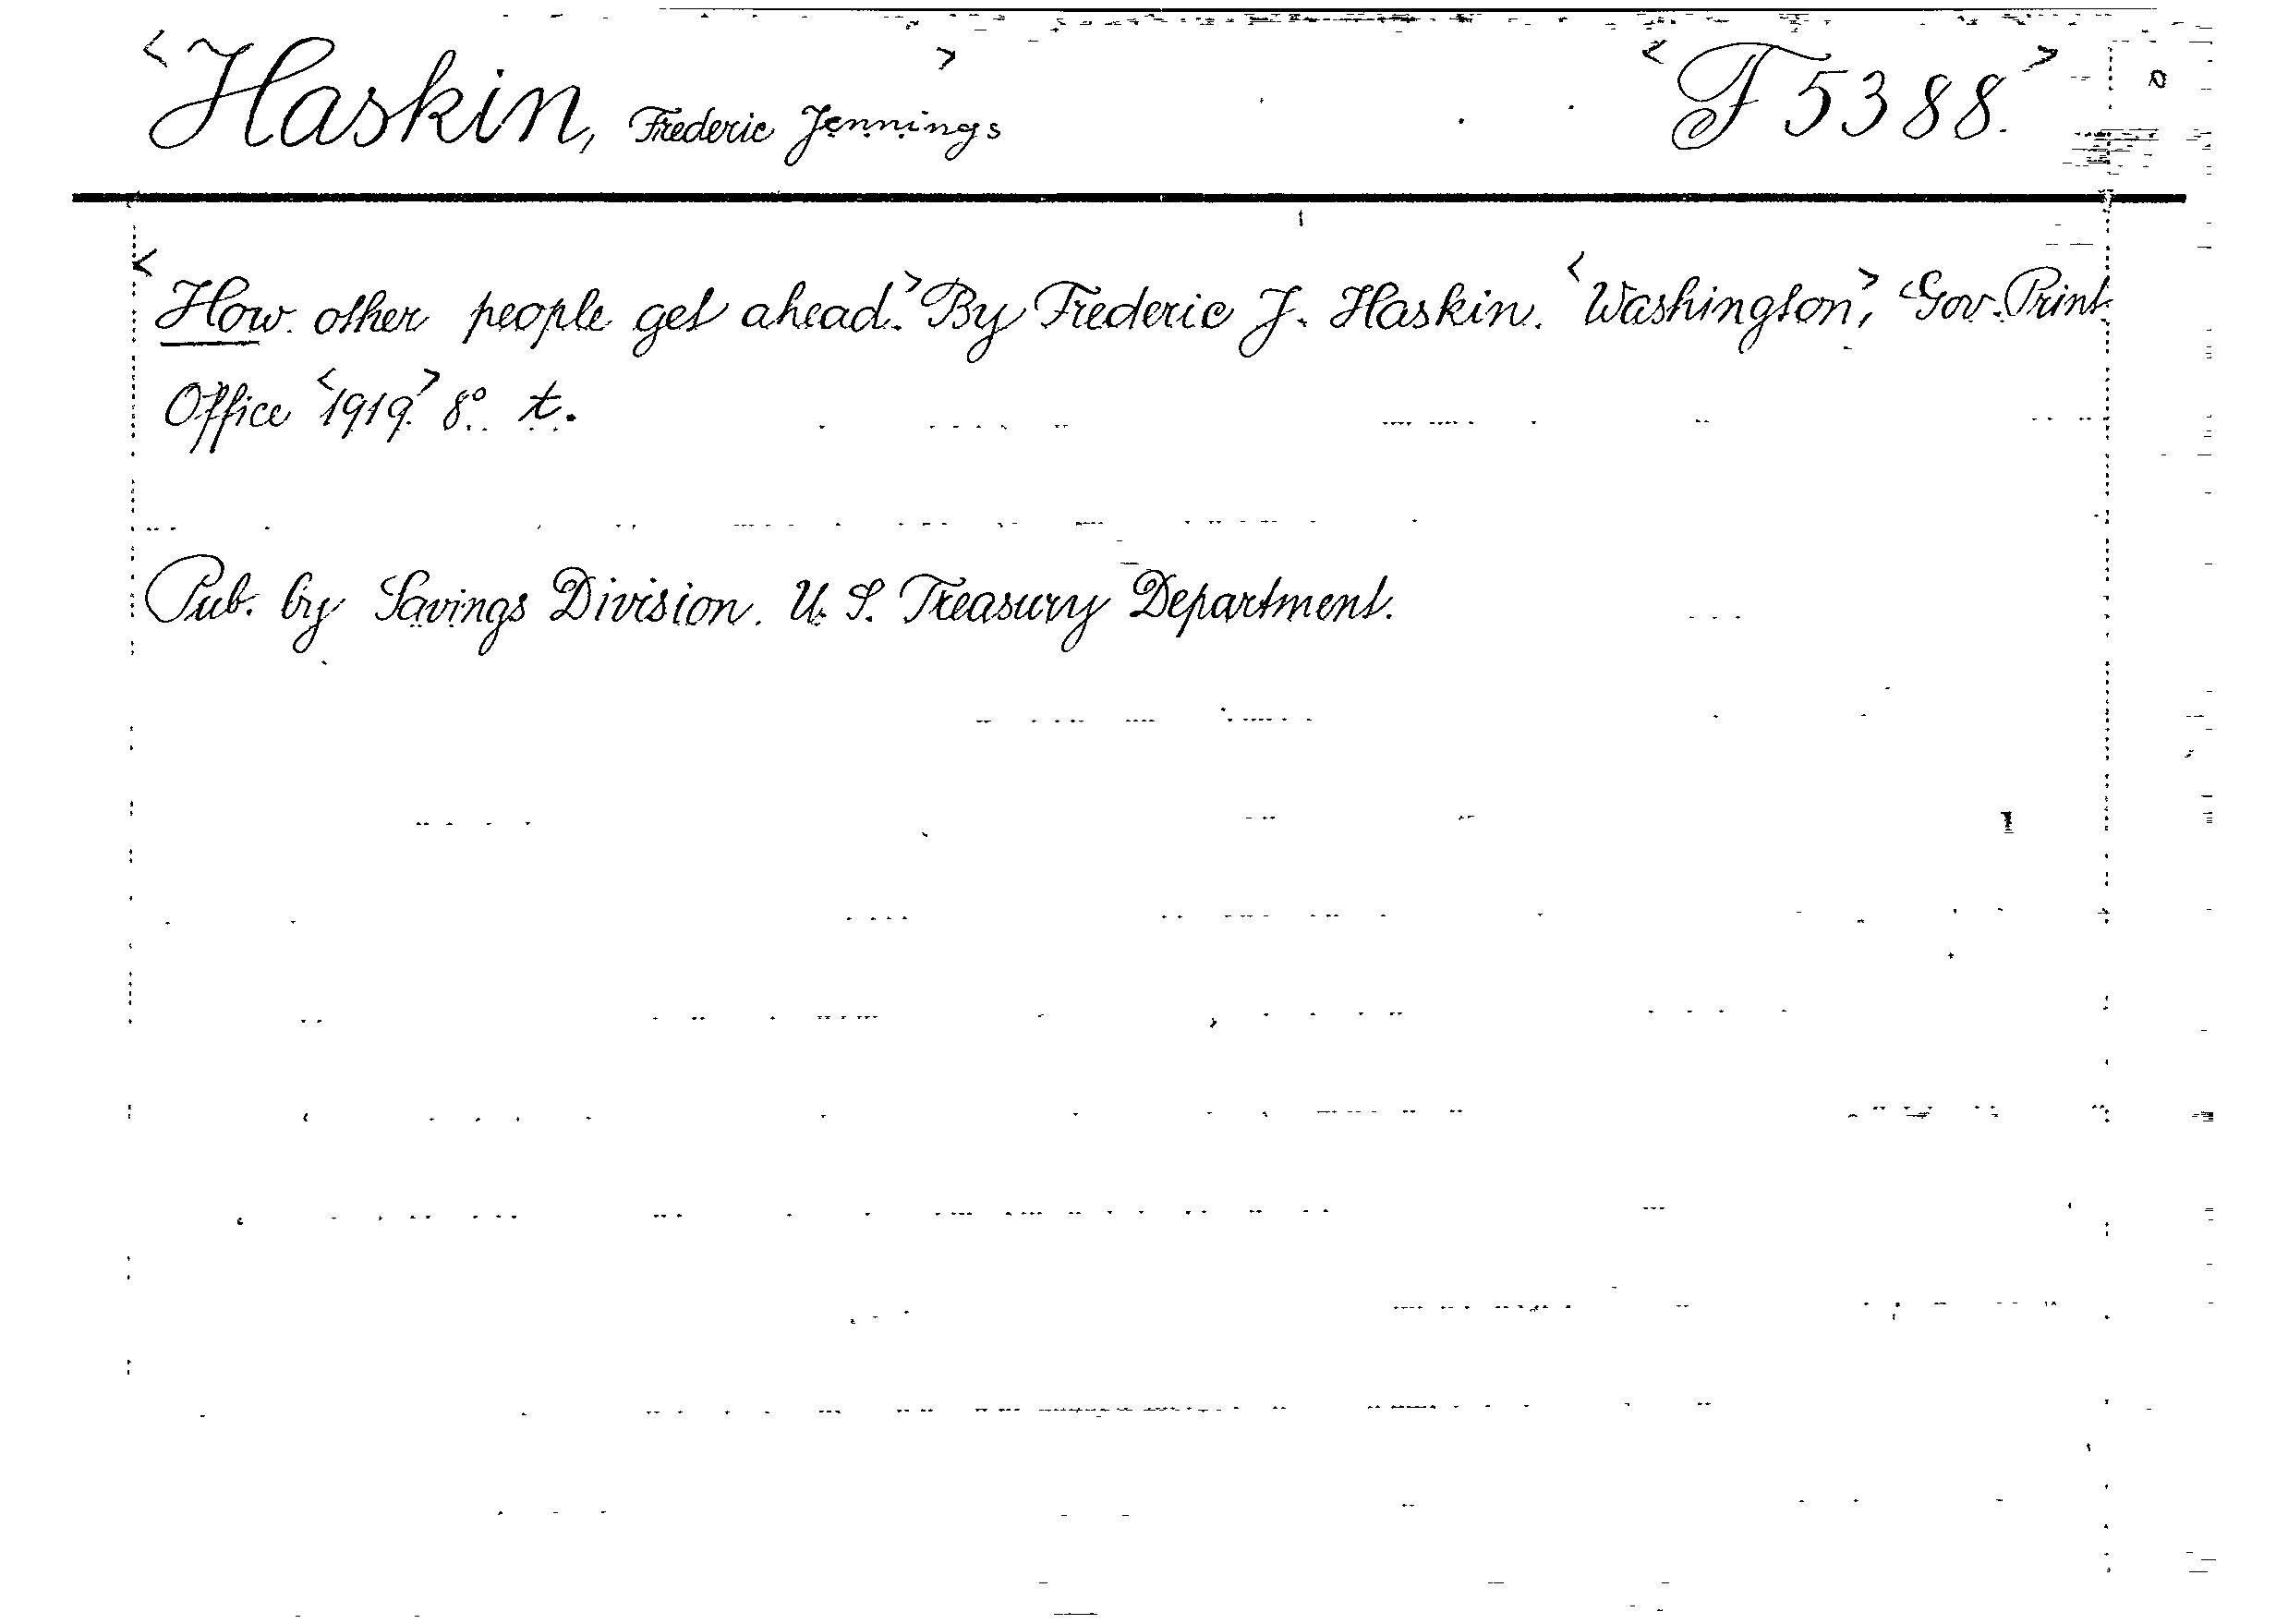 <Haskin, Frederic Jennings> <F 5388.>
<How other people get ahead.> By Frederic J. Haskin. <Washington,> Gov. Print.
Office <1919.> 8°. t.
Pub. by Savings Division. U. S. Treasury Department.